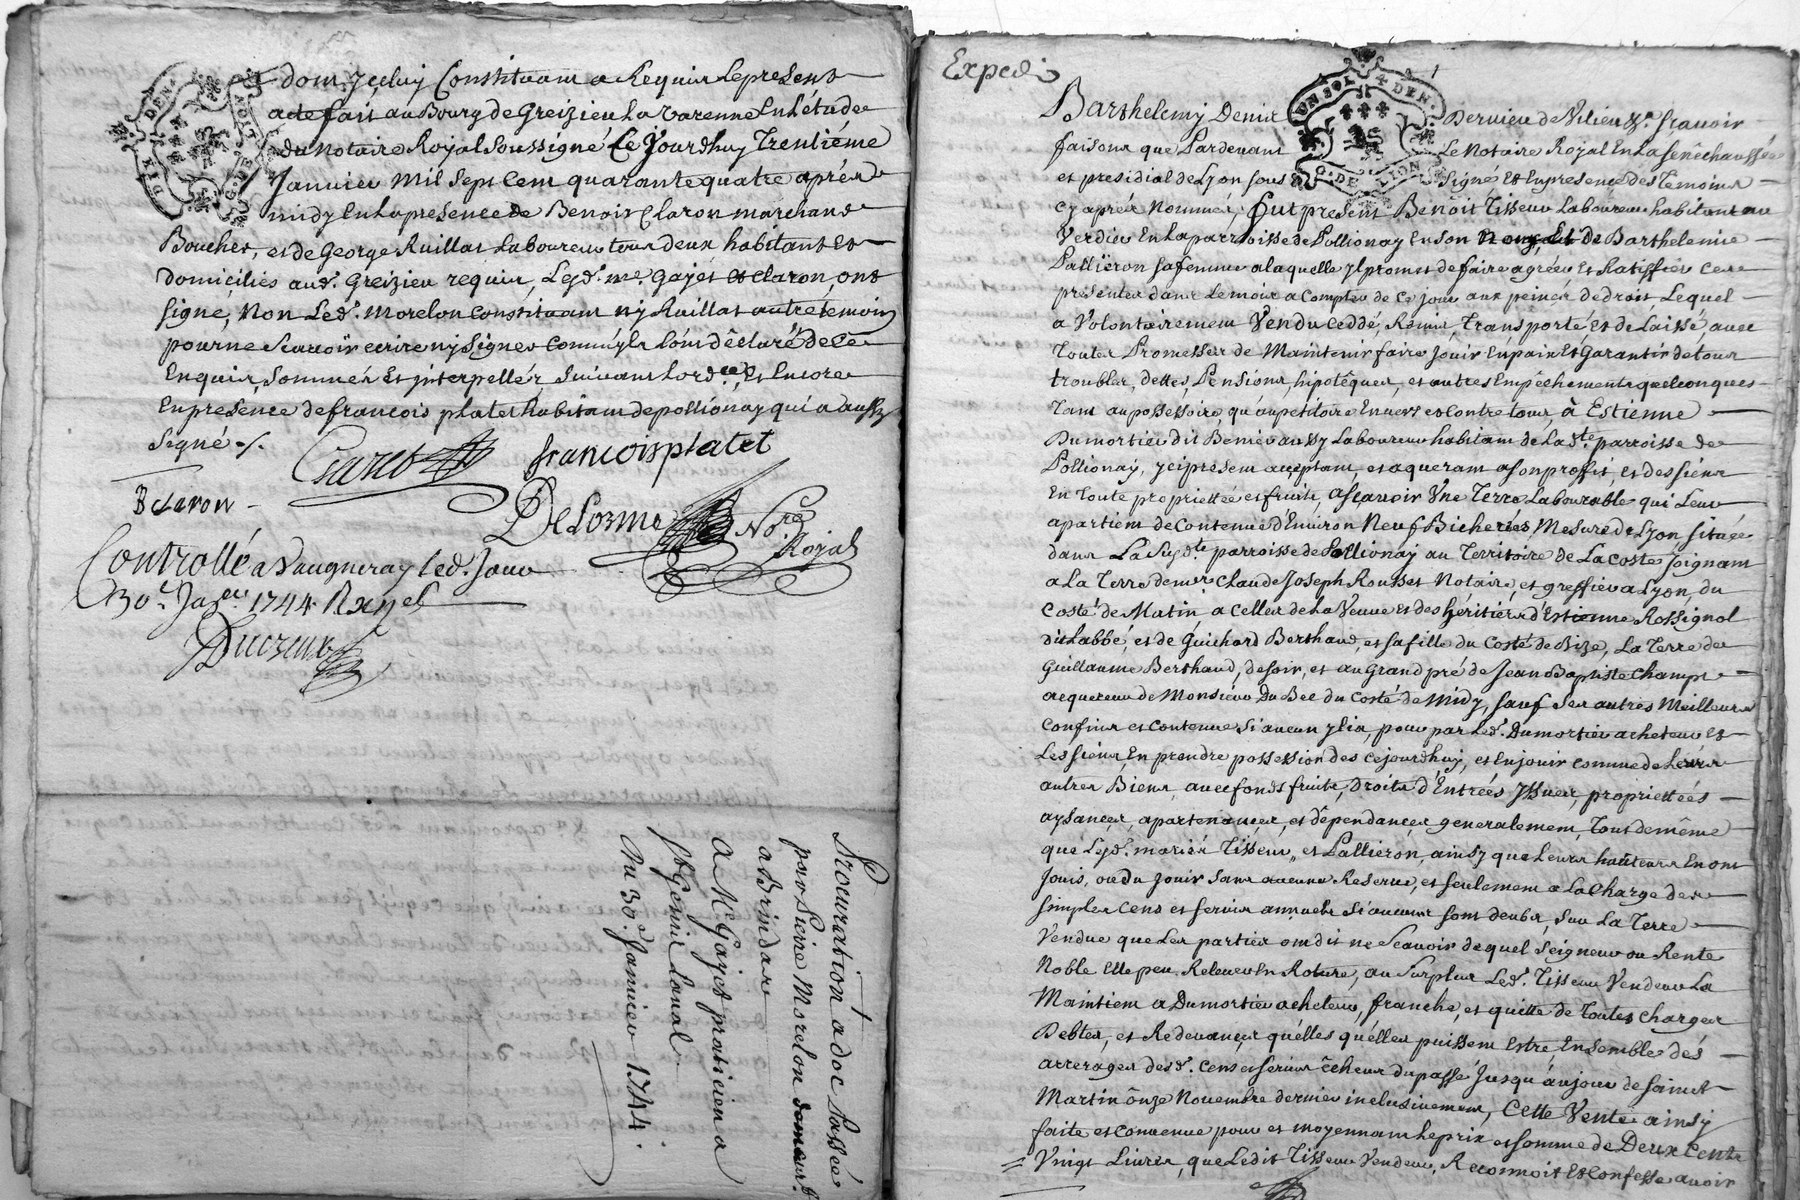 dont yceluy Constituant a Requis Le present
acte fait au Bourg de Greizieu La Varenne En L'étude
du Notaire Royal Soussigné Le Jourdhuy Trentiéme
Janvier Mil Sept Cent quarante quatre aprés
midy En La presence de Benoit Claron marchand
Boucher, et de George Ruillat Laboureur tous deux habitants et
domiciliés aud. Greizieu requis, Lesd. me. Gayet et Claron, ont
signé, Non Led. Morelon Constituant ny Ruillat autre temoin
pour ne Scavoir ecrire ny Signer comme yls L'ont déclaré de ce
Enquis, Sommés et interpellés, Suivant L'ordce, Et Encore
En presence de francois platet habitant de pollionay qui a aussy
Signé ./.
Gayet
francois platet
B claron
DeLorme Nore Royal
Controllé a Vaugneray led. Jour
30e Jaer 1744 R
Ducreux
Procuration adoc Passée
par Pierre Morelon demeurt
a Brindas
a Me Gayet praticien a
St Genis Laval
Du 30e Janvier 1744.
Exped
UN SOL 4 DEN.
G. DE LION
Barthelemy Denis Dervieu de Vilieu &a scavoir
faisons que Pardevant Le Notaire Royal En La senéchaussée
et presidial de Lyon sous Signé Et En presence des Temoins
cy aprés Nommés, fut present Benoit Tisseur Laboureur habitant au
Verdier En La parroisse de Pollionay En son Nom, Et de Barthelemie
Palliéron sa femme a laquelle yl promet de faire agréer et Ratiffier ces
presentes dans Le mois a compter de ce jour aux peines de droit Lequel
a Volontairement Vendu Ceddé, Remis, Transporté et de Laissé avec
Toutes Promesses de Maintenir faire Jouir En paix Et Garantir de tous
troubles, dettes, Pensions, hipotêques, et autres Empêchements quelconques
Tant au possessoire, qu'au petitoire Envers et Contre tous, à Estienne
Dumortier dit Benier aussy Laboureur habitant de Lad.te parroisse de
Pollionay, yci present acceptant, et aquerant a son proffit, et des siens
En Toute proprietté et fruits, ascavoir Une Terre Labourable qui Leur
apartient de Contenue d'Environ Neuf Bicherées, Mesure de Lyon située
dans La Susd.te parroisse de Pollionay au Territoire de La Coste joignant
a La Terre de mre Claude Joseph Rousset Notaire, et greffier a Lyon, du
Costé de Matin a Celles de La Veuve et des héritiers d'Estienne Rossignol
dit Labbé, et de Guichard Berthaud, et sa fille du Costé de Bize, La Terre de
Guillaume Berthaud, de soir, et au Grand pré de Jean Baptiste Champs
acquereur de Monsieur Du Bee du Costé de Midy, sauf Ses autres Meilleurs
Confins et Contenue Si aucun yl i a, pour par Led. Dumortier acheteur Et
Les siens, En prendre possession des cejourdhuy, et En jouir comme de Leurs
autres Biens, avec fonds fruits, Droits d'Entrées Yssues, propriettés
aysances, apartenances, et dépendances generalement, Tout de même
que Lesd. mariés Tisseur, et Palliéron, ainsy que Leurs hauteurs En ont
Jouis, ou du Jouir Sans aucune Reserve, et seulement a La Charge des
simples Cens et servis annuels Si aucuns sont deubs, Sur La Terre
Vendue que Les parties ont dit ne Scavoir de quel Seigneur ou Rente
Noble Elle peu Relever En Roture, au Surplus Led. Tisseur Vendeur La
Maintient a Dumortier acheteur, franche, et quitte de Toutes Charges
Debtes, et Redevances quélles quélles puissent Estre, Ensemble dés
arrerages desd. Cens et servis écheus du passé Jusqu'áu jour de saint
Martin ônze Novembre dernier inclusivement, Cette Vente ainsy
faite et convenue pour et moyennant Le prix et somme de Deux Cents
Vingt Livres, que Ledit Tisseur Vendeur, Reconnoit Et Confesse avoir